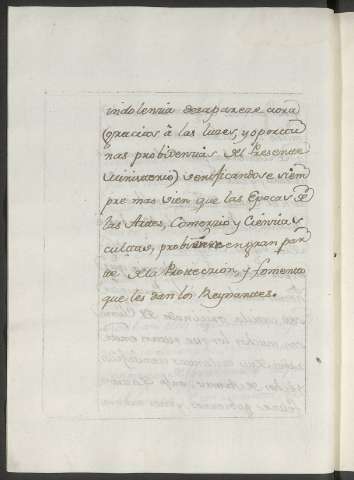 indolenzia desapareze aora
(gracias â las luzes, y oportu
nas probidenzias del Presente
Ministerio) verificandose siem
pre mas vien que las Epocas de
las Artes, Comerzio y Ciencias
cultas, probienen en gran par
te de la Proteczion, y fomento
que les dan los Reynantes.